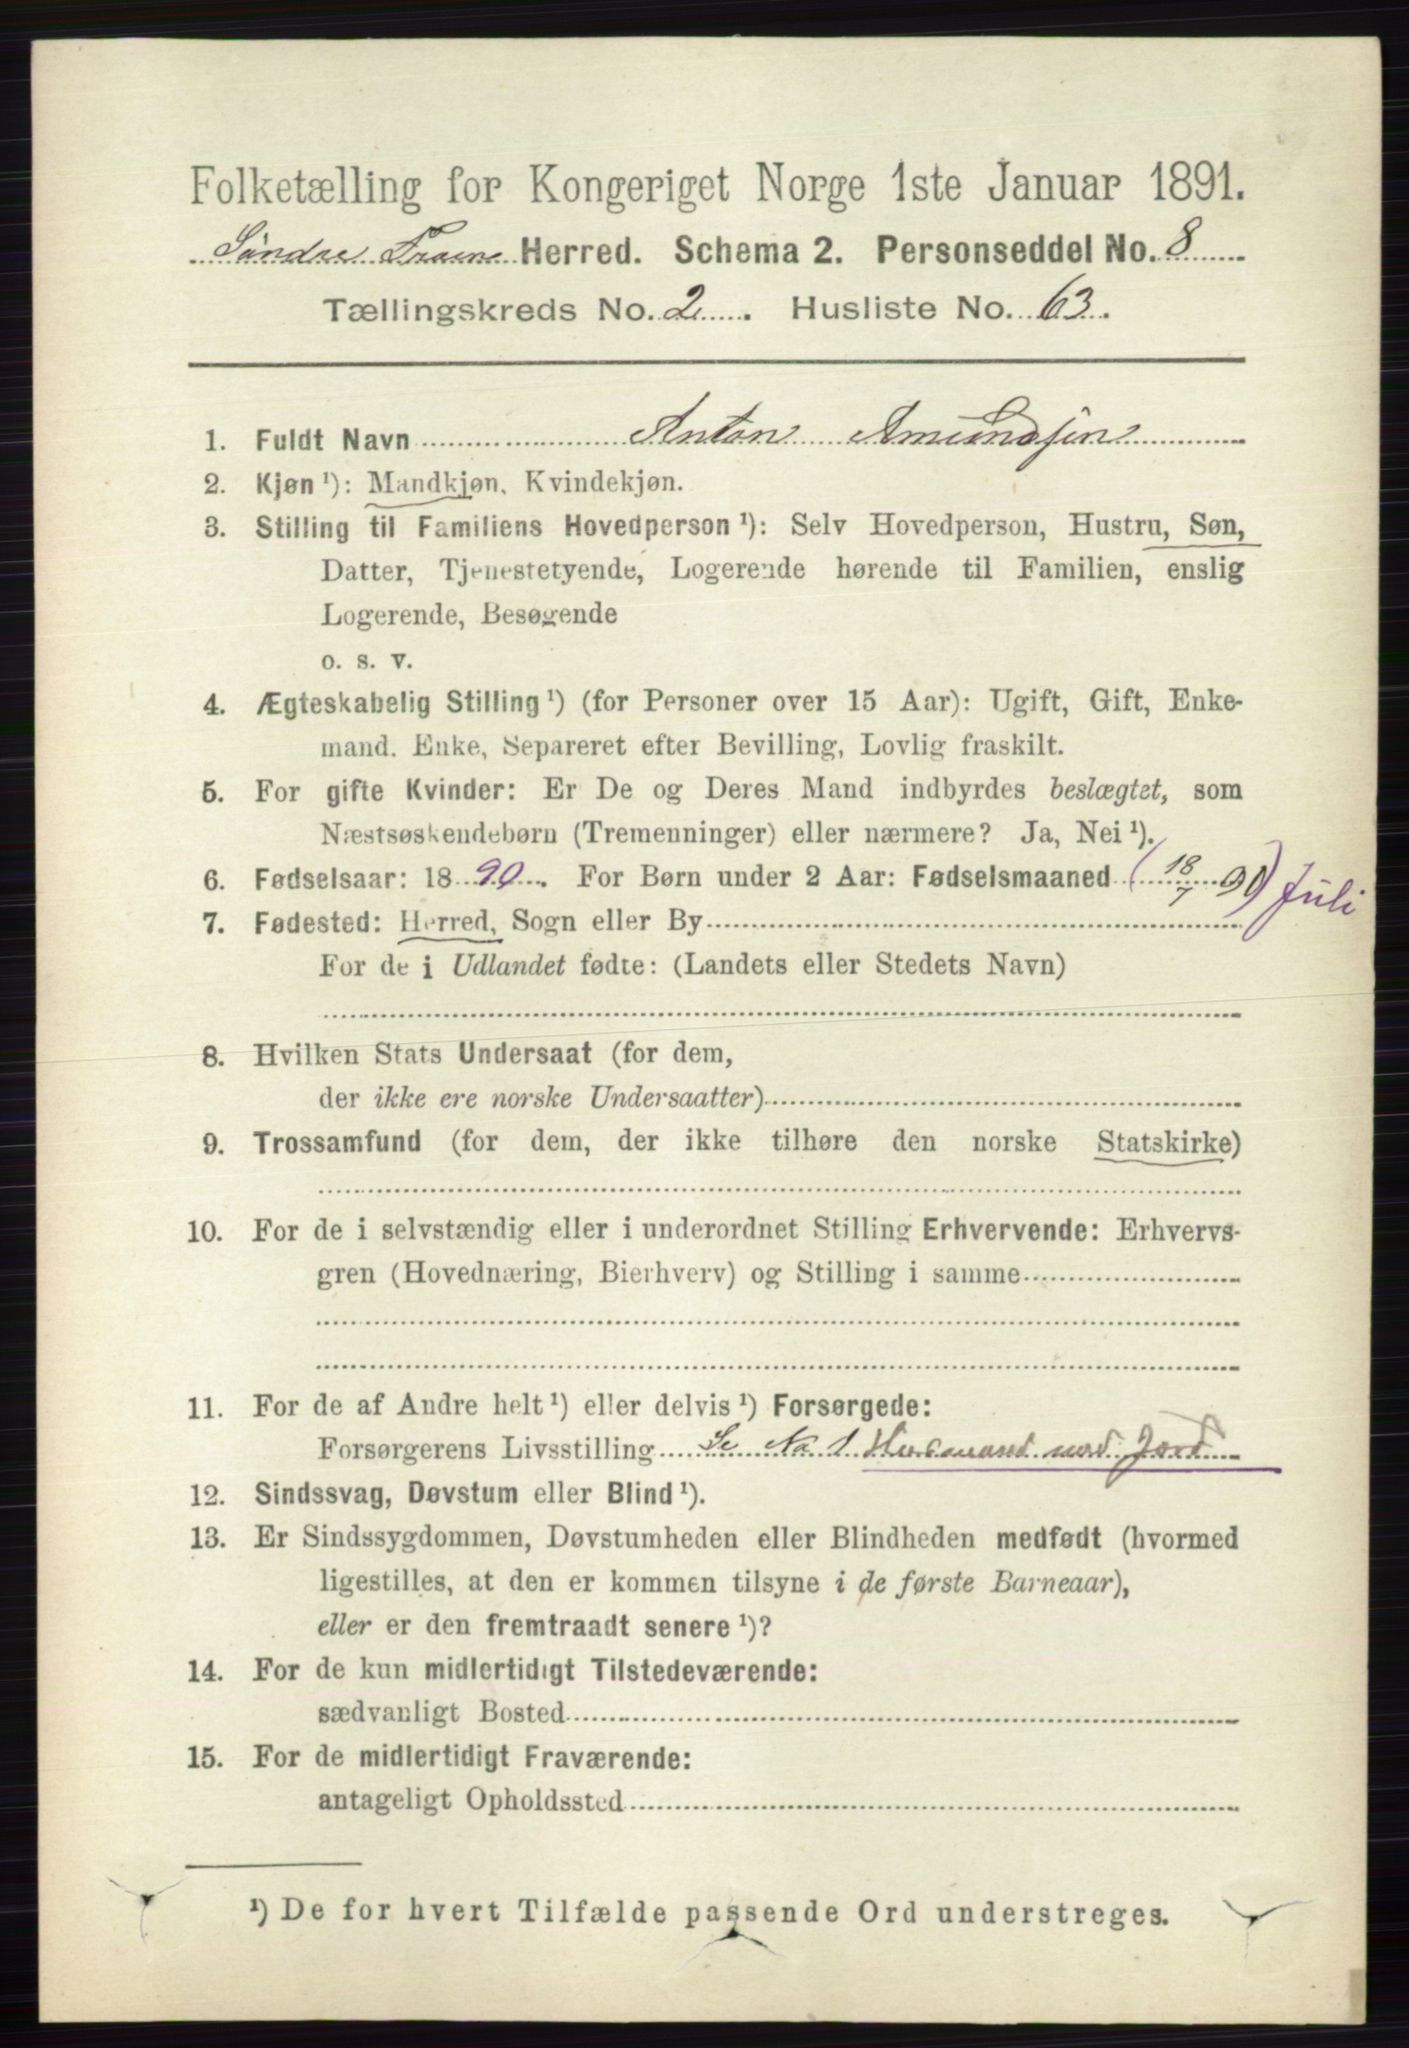 Folketælling for Kongeriget Norge 1ste Januar 1891.
Søndre Fron Herred. Schema 2. Personseddel No. 8
Tællingskreds No. 2. Husliste No. 63.
1. Fuldt Navn Anton Amundsen
2. Kjøn ¹): Mandkjøn, Kvindekjøn.
3. Stilling til Familiens Hovedperson ¹): Selv Hovedperson, Hustru, Søn,
Datter, Tjenestetyende, Logerende hørende til Familien, enslig
Logerende, Besøgende
o. s. v.
4. Ægteskabelig Stilling ¹) (for Personer over 15 Aar): Ugift, Gift, Enke-
mand. Enke, Separeret efter Bevilling, Lovlig fraskilt.
5. For gifte Kvinder: Er De og Deres Mand indbyrdes beslægtet, som
Næstsøskendebørn (Tremenninger) eller nærmere? Ja, Nei ¹).
6. Fødselsaar: 1890. For Børn under 2 Aar: Fødselsmaaned (18/7 90) Juli
7. Fødested: Herred, Sogn eller By
For de i Udlandet fødte: (Landets eller Stedets Navn)
8. Hvilken Stats Undersaat (for dem,
der ikke ere norske Undersaatter)
9. Trossamfund (for dem, der ikke tilhøre den norske Statskirke)
10. For de i selvstændig eller i underordnet Stilling Erhvervende: Erhvervs-
gren (Hovednæring, Bierhverv) og Stilling i samme
11. For de af Andre helt ¹) eller delvis ¹) Forsørgede:
Forsørgerens Livsstilling Se No 1 Husmand med Jord
12. Sindssvag, Døvstum eller Blind ¹).
13. Er Sindssygdommen, Døvstumheden eller Blindheden medfødt (hvormed
ligestilles, at den er kommen tilsyne i de første Barneaar),
eller er den fremtraadt senere ¹)?
14. For de kun midlertidigt Tilstedeværende:
sædvanligt Bosted
15. For de midlertidigt Fraværende:
antageligt Opholdssted
¹) De for hvert Tilfælde passende Ord understreges.